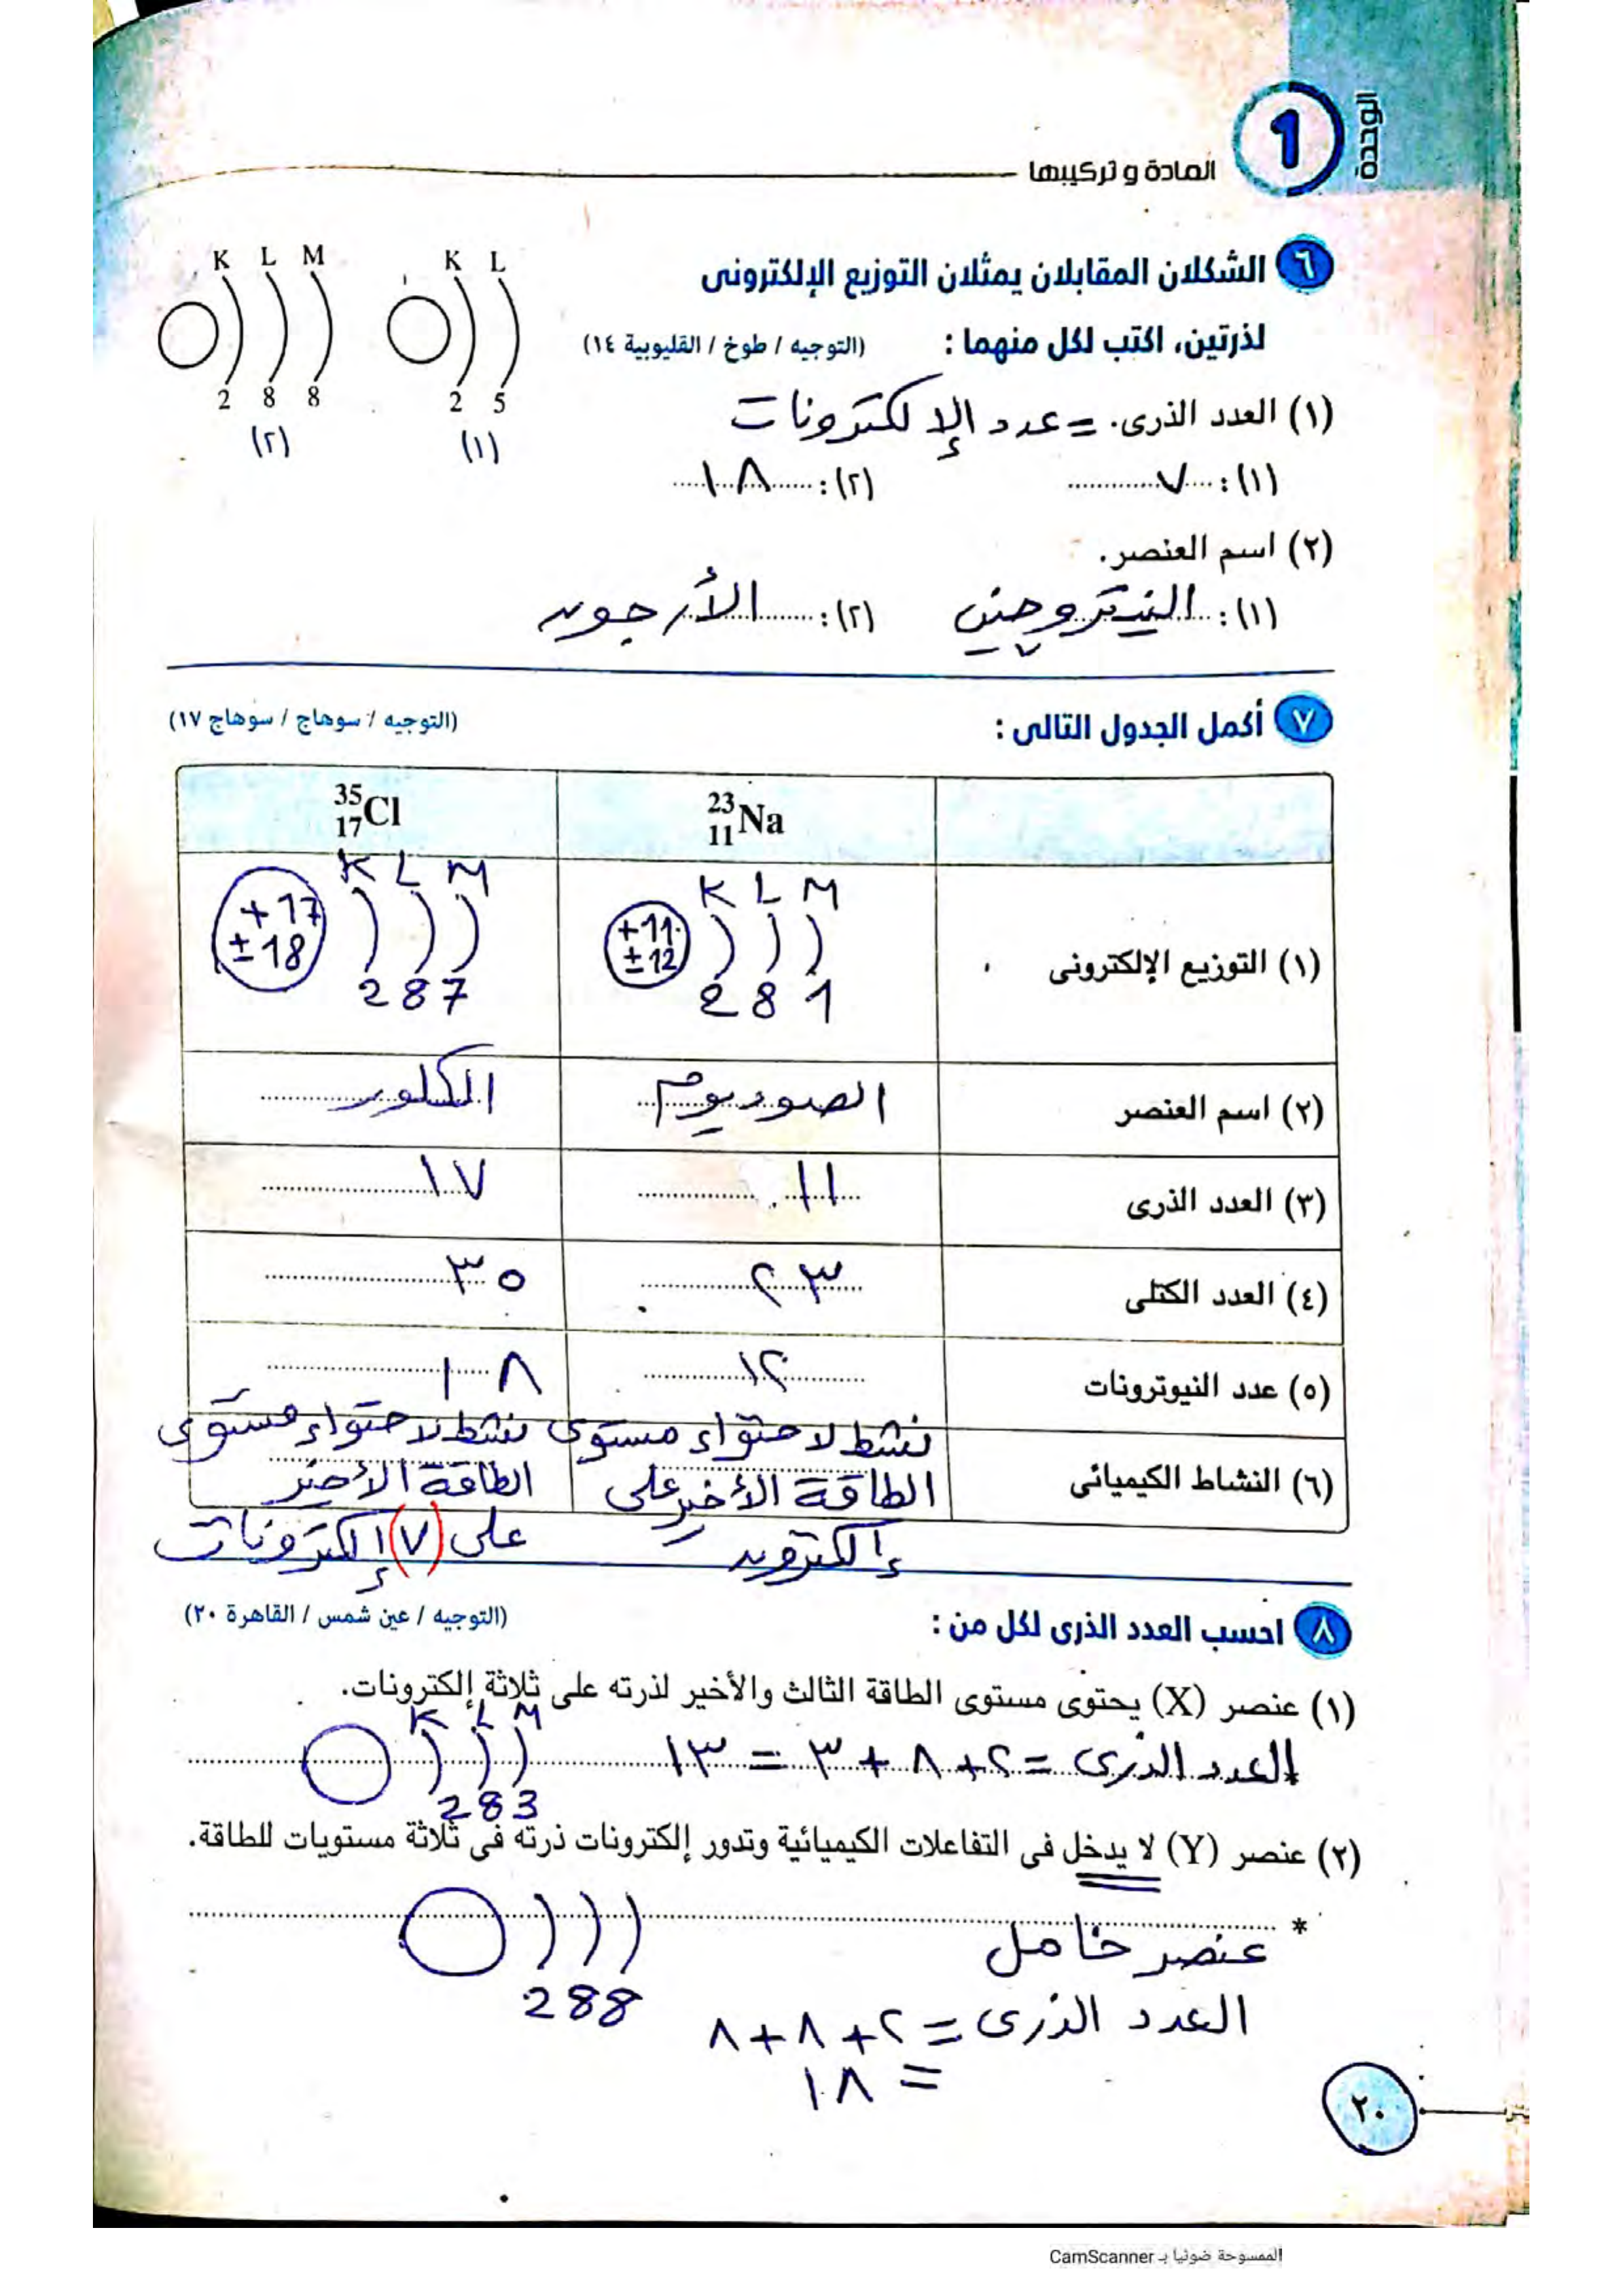 الوحدة
1
المادة و تركيبها
٦ الشكلان المقابلان يمثلان التوزيع الإلكترونى
لذرتين، اكتب لكل منهما : (التوجيه / طوخ / القليوبية ١٤)
K L M
2 8 8
(٢)
K L
2 5
(١)
(١) العدد الذرى. = عدد الإلكترونات
(١): ٧ (٢): ١٨
(٢) اسم العنصر.
(١): النيتروجين (٢): الأرجون
٧ أكمل الجدول التالى : (التوجيه / سوهاج / سوهاج ١٧)
23 11 Na 35 17 Cl
(١) التوزيع الإلكترونى
K L M
+11
± 12
2 8 1
K L M
+ 17
± 18
2 8 7
(٢) اسم العنصر الصوديوم الكلور
(٣) العدد الذرى ١١ ١٧
(٤) العدد الكتلى ٢٣ ٣٥
(٥) عدد النيوترونات ١٢ ١٨
(٦) النشاط الكيميائى
نشط لاحتواء مستوى
الطاقة الأخير على
إلكترون
نشط لاحتواء مستوى
الطاقة الأخير
على (٧) إلكترونات
٨ احسب العدد الذرى لكل من : (التوجيه / عين شمس / القاهرة ٢٠)
(١) عنصر (X) يحتوى مستوى الطاقة الثالث والأخير لذرته على ثلاثة إلكترونات.
* العدد الذرى = ٢ + ٨ + ٣ = ١٣
K L M
2 8 3
(٢) عنصر (Y) لا يدخل فى التفاعلات الكيميائية وتدور إلكترونات ذرته فى ثلاثة مستويات للطاقة.
*
عنصر خامل
2 8 8
العدد الذرى = ٢ + ٨ + ٨
= ١٨
٢٠
الممسوحة ضوئيا بـ CamScanner